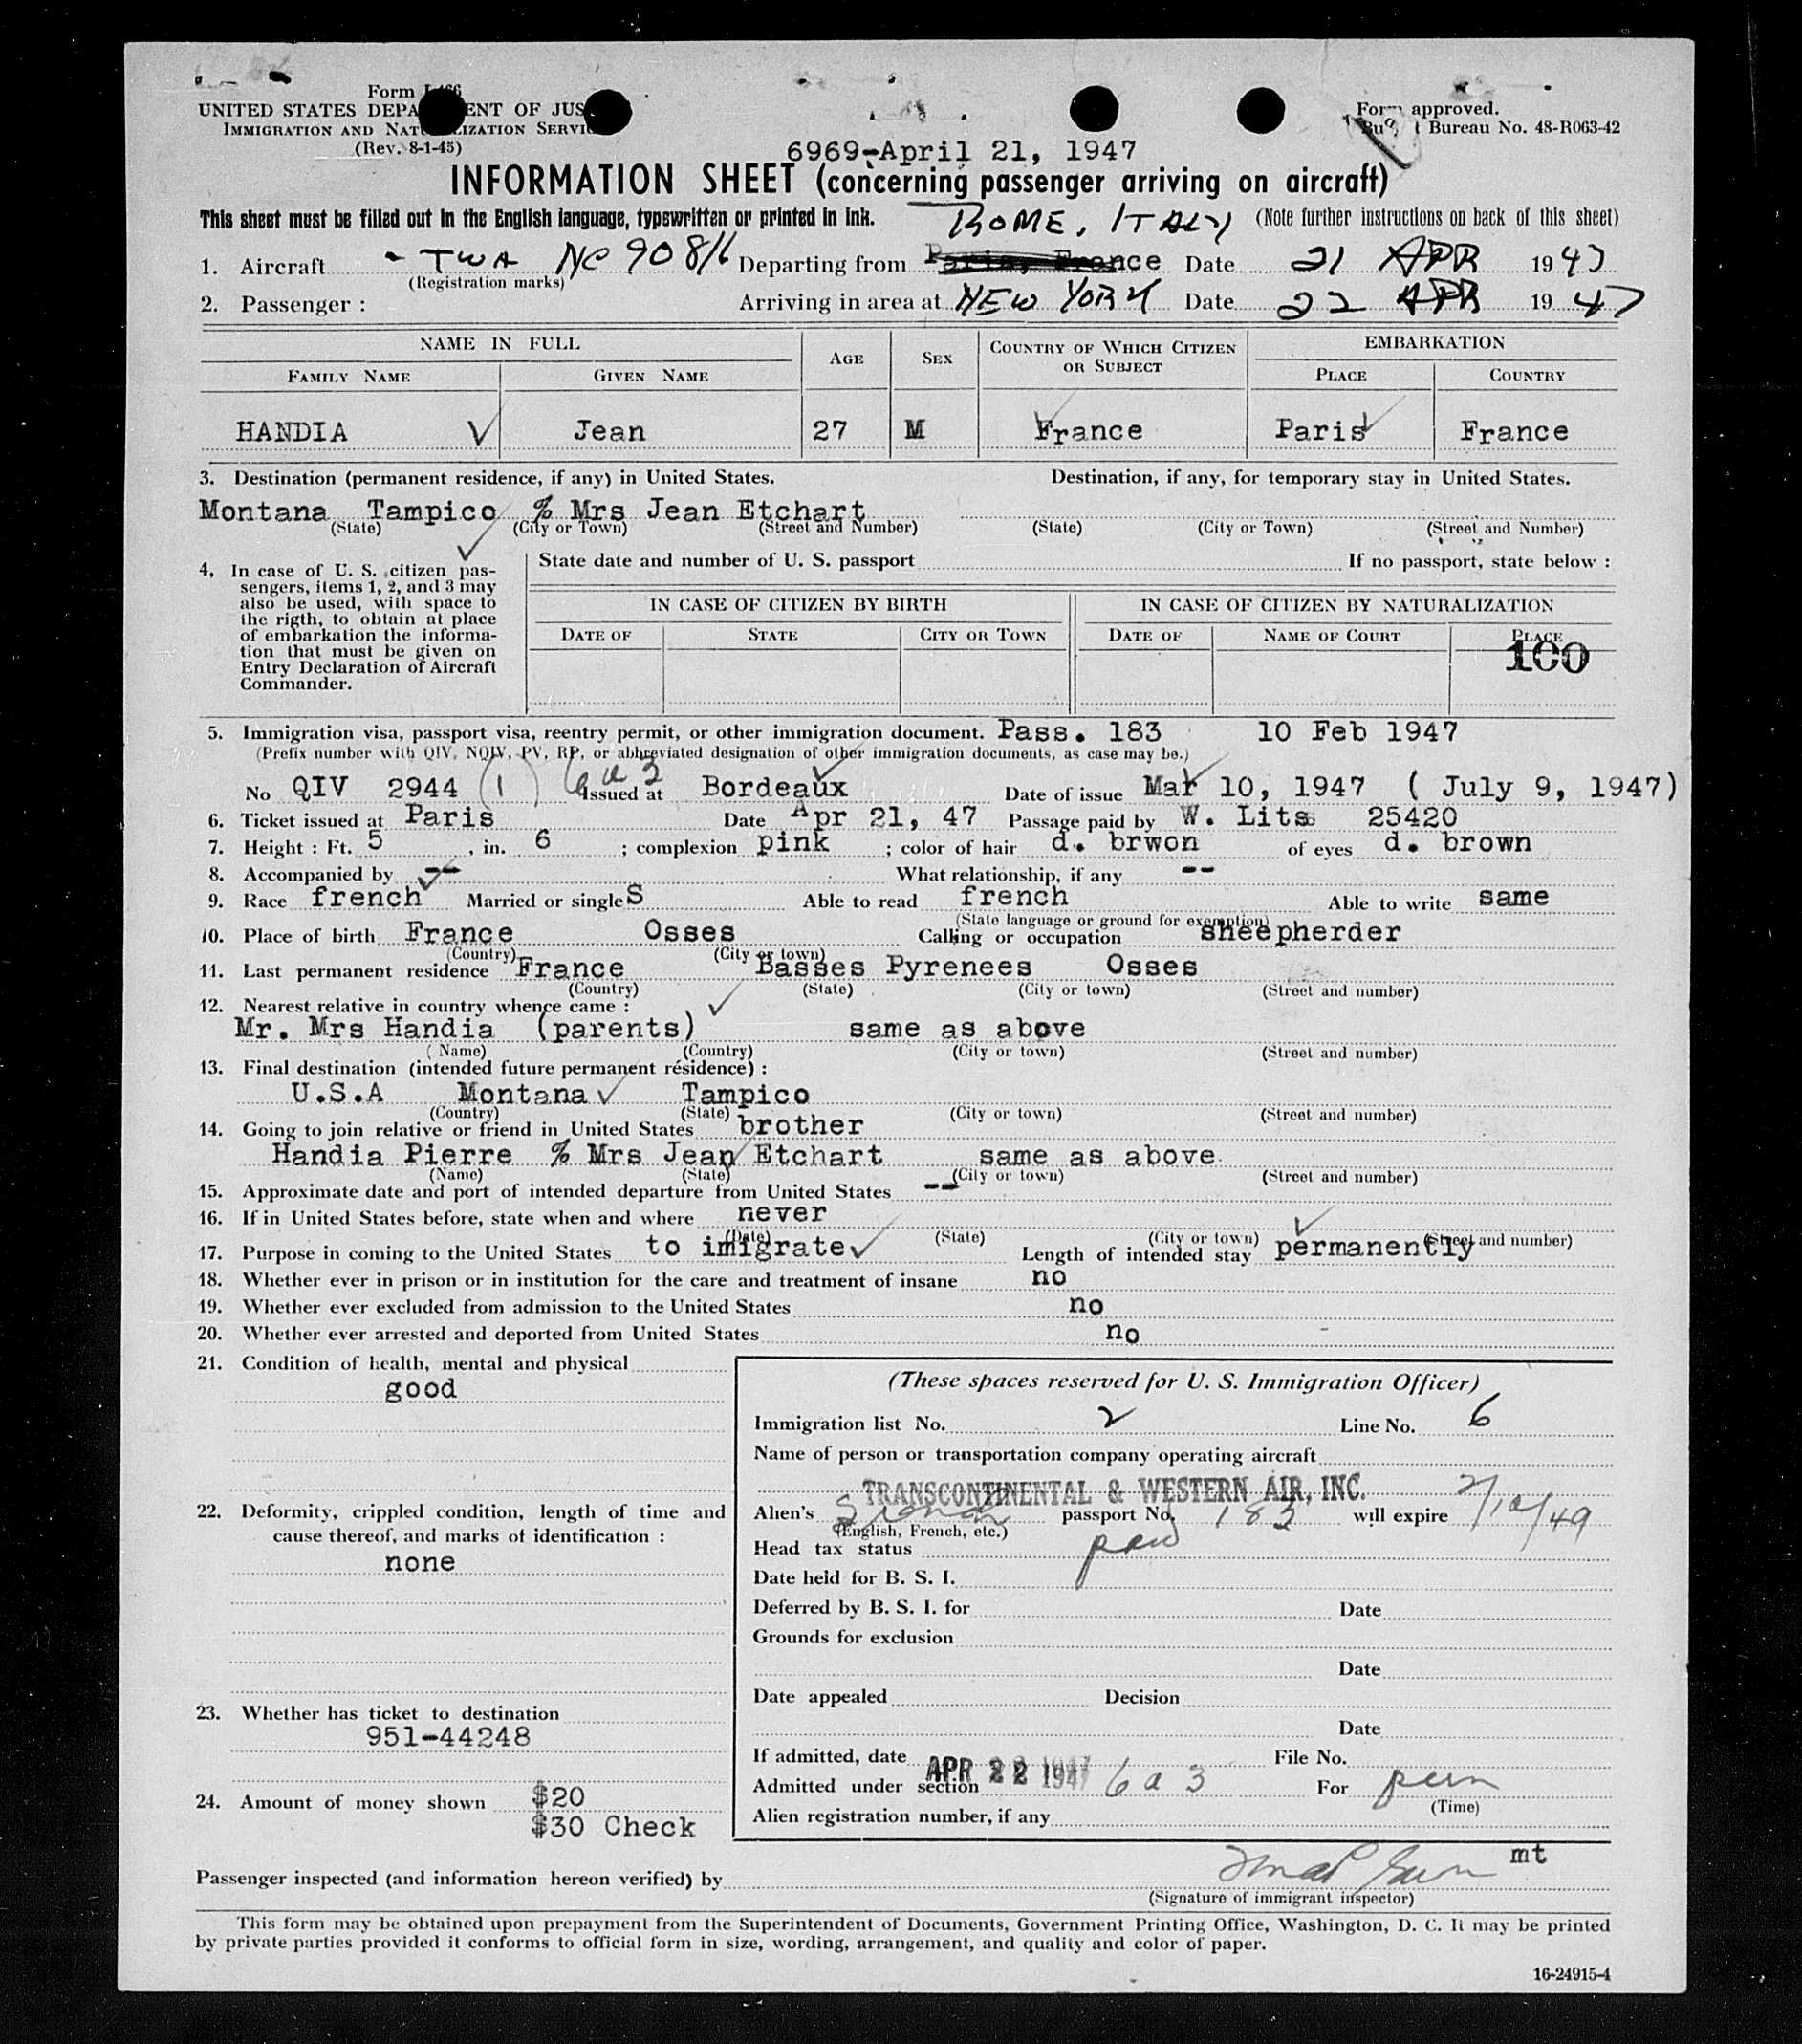 Form I-466
UNITED STATES DEPA ENT OF JUS
IMMIGRATION AND NAT IZATION SERVI
(Rev. 8-1-45)
Form approved.
Bu t Bureau No. 48-R063-42
6969-April 21, 1947
INFORMATION SHEET (concerning passenger arriving on aircraft)
This sheet must be filled out in the English language, typewritten or printed in ink. ROME, ITALY (Note further instructions on back of this sheet)
1. Aircraft - TWA NC 90816 Departing from Paris, France Date 21 APR 1947
(Registration marks)
2. Passenger : Arriving in area at NEW YORK Date 22 APR 1947
NAME IN FULL AGE SEX COUNTRY OF WHICH CITIZEN OR SUBJECT EMBARKATION
FAMILY NAME GIVEN NAME PLACE COUNTRY
HANDIA Jean 27 M France Paris France
3. Destination (permanent residence, if any) in United States. Destination, if any, for temporary stay in United States.
Montana Tampico % Mrs Jean Etchart
(State) (City or Town) (Street and Number) (State) (City or Town) (Street and Number)
4, In case of U. S. citizen pas-
sengers, items 1, 2, and 3 may
also be used, with space to
the rigth, to obtain at place
of embarkation the informa-
tion that must be given on
Entry Declaration of Aircraft
Commander.
State date and number of U. S. passport If no passport, state below :
IN CASE OF CITIZEN BY BIRTH IN CASE OF CITIZEN BY NATURALIZATION
DATE OF STATE CITY OR TOWN DATE OF NAME OF COURT PLACE
100
5. Immigration visa, passport visa, reentry permit, or other immigration document. Pass. 183 10 Feb 1947
(Prefix number with QIV, NQIV, PV, RP, or abbreviated designation of other immigration documents, as case may be.)
No QIV 2944 (1) 6 a 3 Issued at Bordeaux Date of issue Mar 10, 1947 ( July 9, 1947)
6. Ticket issued at Paris Date Apr 21, 47 Passage paid by W. Lits 25420
7. Height : Ft. 5 , in. 6 ; complexion pink ; color of hair d. brwon of eyes d. brown
8. Accompanied by -- What relationship, if any --
9. Race french Married or single S Able to read french Able to write same
(State language or ground for exemption)
10. Place of birth France Osses Calling or occupation sheepherder
(Country) (City or town)
11. Last permanent residence France Basses Pyrenees Osses
(Country) (State) (City or town) (Street and number)
12. Nearest relative in country whence came :
Mr. Mrs Handia (parents) same as above
( Name) (Country) (City or town) (Street and number)
13. Final destination (intended future permanent résidence) :
U.S.A Montana Tampico
(Country) (State) (City or town) (Street and number)
14. Going to join relative or friend in United States brother
Handia Pierre % Mrs Jean Etchart same as above
(Name) (State) (City or town) (Street and number)
15. Approximate date and port of intended departure from United States --
16. If in United States before, state when and where never
(Date) (State) (City or town) (Street and number)
17. Purpose in coming to the United States to imigrate Length of intended stay permanently
18. Whether ever in prison or in institution for the care and treatment of insane no
19. Whether ever excluded from admission to the United States no
20. Whether ever arrested and deported from United States no
21. Condition of health, mental and physical
good
22. Deformity, crippled condition, length of time and
cause thereof, and marks of identification :
none
23. Whether has ticket to destination
951-44248
24. Amount of money shown $20
$30 Check
(These spaces reserved for U. S. Immigration Officer)
Immigration list No. 2 Line No. 6
Name of person or transportation company operating aircraft
TRANSCONTINENTAL & WESTERN AIR, INC.
Alien's French passport No. 183 will expire 2/10/49
(English, French, etc.)
Head tax status paid
Date held for B. S. I.
Deferred by B. S. I. for Date
Grounds for exclusion
Date
Date appealed Decision
Date
If admitted, date APR 22 1947 File No.
Admitted under section 6 a 3 For perm
(Time)
Alien registration number, if any
mt
Passenger inspected (and information hereon verified) by
(Signature of immigrant inspector)
This form may be obtained upon prepayment from the Superintendent of Documents, Government Printing Office, Washington, D. C. It may be printed
by private parties provided it conforms to official form in size, wording, arrangement, and quality and color of paper.
16-24915-4